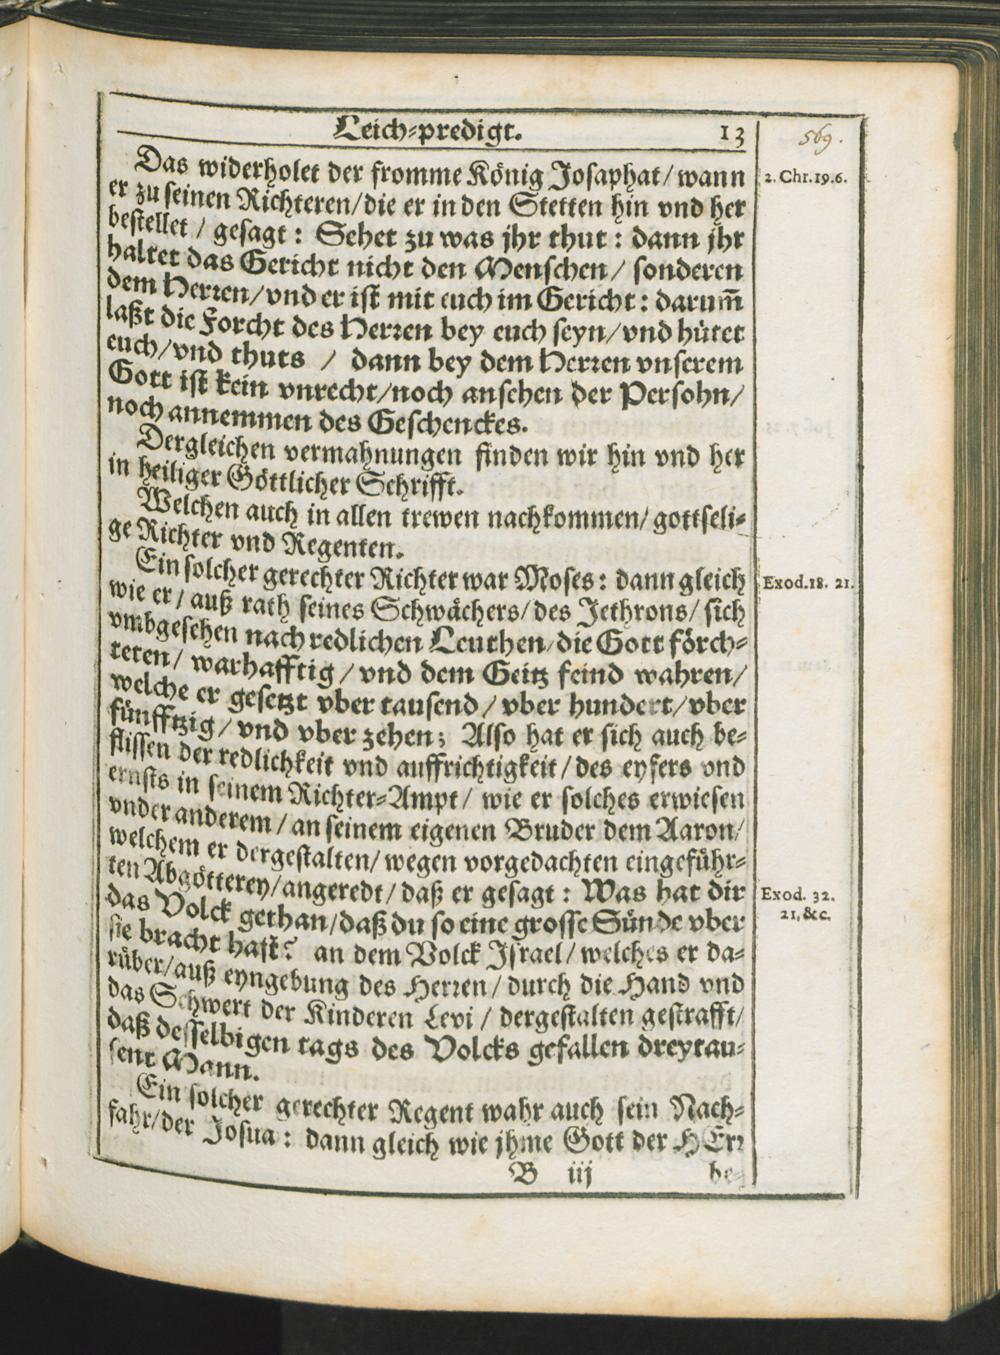 Leich-predigt. 13
569.
Das widerholet der fromme König Josaphat/ wann
2. Chr. 19. 6.
er zu seinen Richteren/ die er in den Stetten hin vnd her
bestellet / gesagt : Sehet zu was jhr thut : dann jhr
haltet das Gericht nicht den Menschen/ sonderen
dem Herren/ vnd er ist mit euch im Gericht : darum̄
laßt die Forcht des Herren bey euch seyn/ vnd hütet
euch/ vnd thuts / dann bey dem Herren vnserem
Gott ist kein vnrecht/ noch ansehen der Persohn/
noch annemmen des Geschenckes.
Dergleichen vermahnungen finden wir hin vnd her
in heiliger Göttlicher Schrifft.
Welchen auch in allen trewen nachkommen/ gottseli-
ge Richter vnd Regenten.
Ein solcher gerechter Richter war Moses : dann gleich
Exod. 18. 21.
wie er / auß rath seines Schwächers/ des Jethrons/ sich
vmbgesehen nach redlichen Leuthen/ die Gott förch-
teten/ warhafftig / vnd dem Geitz feind wahren/
welche er gesetzt vber tausend / vber hundert/ vber
fünfftzig / vnd vber zehen ; Also hat er sich auch be-
flissen der redlichkeit vnd auffrichtigkeit / des eyfers vnd
ernsts in seinem Richter-Ampt / wie er solches erwiesen
vnder anderem / an seinem eigenen Bruder dem Aaron/
welchem er dergestalten/ wegen vorgedachten eingeführ-
ten Abgötterey/ angeredt / daß er gesagt : Was hat dir
Exod. 32.
das Volck gethan/ daß du so eine grosse Sünde vber
21, &c.
sie bracht hast? an dem Volck Israel / welches er da-
rüber/ auß eyngebung des Herren / durch die Hand vnd
das Schwert der Kinderen Levi / dergestalten gestrafft/
daß desselbigen tags des Volcks gefallen dreytau-
sent Mann.
Ein solcher gerechter Regent wahr auch sein Nach-
fahr/ der Josua : dann gleich wie jhme Gott der HErr
B iij be-